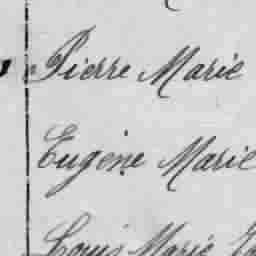 Pierre Marie
Eugène Marie
Louis Marie